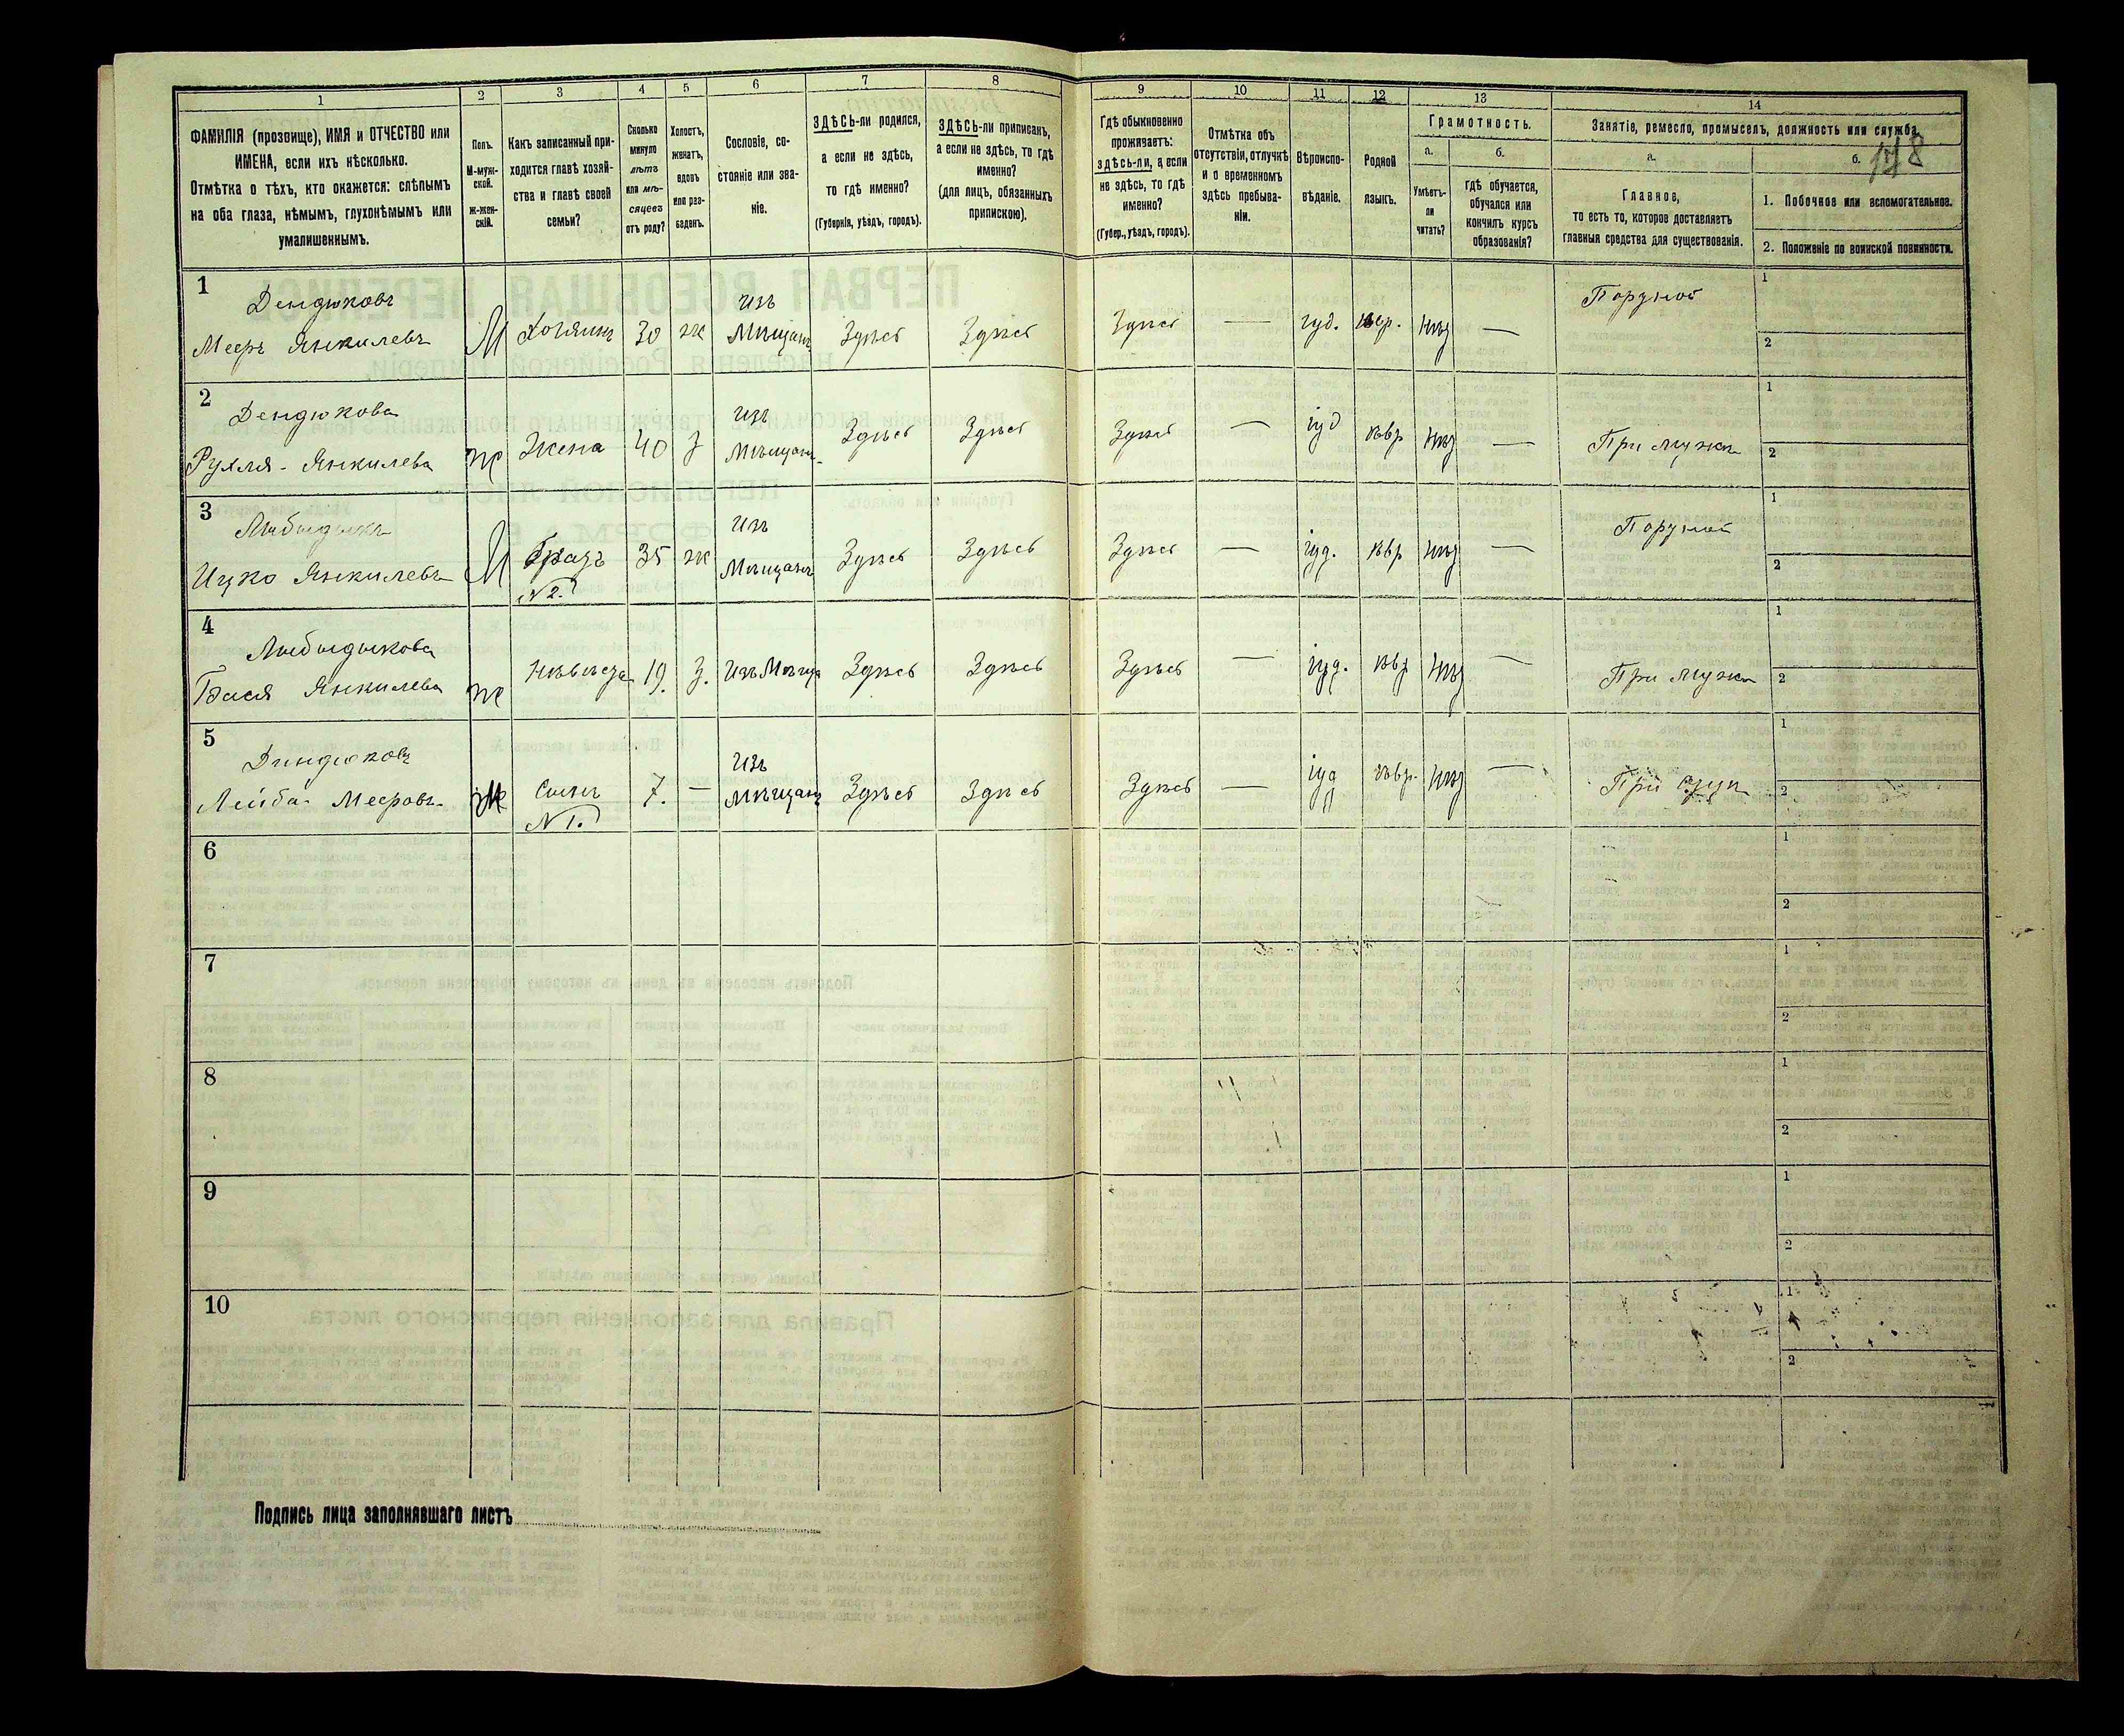 1 2 3 4 5 6 7 8 9 10 11 12 13 14
ФАМИЛІЯ (прозвище), ИМЯ и ОТЧЕСТВО или
ИМЕНА, если ихъ нѣсколько.
Отмѣтка о тѣхъ, кто окажется: слѣпымъ
на оба глаза, нѣмымъ, глухонѣмымъ или
умалишеннымъ.
Полъ.
М-муж-
ской.
ж-жен-
скій.
Какъ записанный при-
ходится главѣ хозяй-
ства и главѣ своей
семьи?
Сколько
минуло
лѣтъ
или мѣ-
сяцевъ
отъ роду?
Холостъ,
женатъ,
вдовъ
или раз-
веденъ.
Сословіе, со-
стояніе или зва-
ніе.
ЗДѢСЬ-ли родился,
а если не здѣсь,
то гдѣ именно?
(Губернія, уѣздъ, городъ).
ЗДѢСЬ-ли приписанъ,
а если не здѣсь, то гдѣ
именно?
(для лицъ, обязанныхъ
припискою).
Гдѣ обыкновенно
проживаетъ:
здѣсь-ли, а если
не здѣсь, то гдѣ
именно?
(Губер., уѣздъ, городъ).
Отмѣтка объ
отсутствіи, отлучкѣ
и о временномъ
здѣсь пребыва-
ніи.
Вѣроиспо-
вѣданіе.
Родной
языкъ.
Грамотность.
а.
Умѣетъ-
ли
читать?
б.
Гдѣ обучается,
обучался или
кончилъ курсъ
образованія?
Занятіе, ремесло, промыселъ, должность или служба.
а.
Главное,
то есть то, которое доставляетъ
главныя средства для существованія.
б.
1. Побочное или вспомогательное.
2. Положеніе по воинской повинности.
1
Дендюковъ
Мееръ Янкилевъ М Хозяинъ 30 ж изъ Мѣщанъ Здѣсь Здѣсь Здѣсь — іуд. евр. нѣт —
1
2
2
Дендюкова
Рухля- Янкилева ж Жена 40 з изъ Мѣщанъ Здѣсь Здѣсь Здѣсь — іуд евр нѣт — При мужѣ
1
2
3
Ицко Янкилевъ М Братъ 35 ж изъ Мѣщанъ Здѣсь Здѣсь Здѣсь — іуд. евр нѣт —
N 2.
1
2
4
Бася Янкилева ж Невѣста 19. з. Изъ Мѣщ Здѣсь Здѣсь Здѣсь — іуд. евр нѣт — При мужѣ
1
2
5
Диндюковъ
Лейба- Мееровъ М Сынъ 7. — изъ Мѣщанъ Здѣсь Здѣсь Здѣсь — іуд евр. нѣт — При
N 1.
1
2
6
1
2
7
1
2
8
1
2
9
1
2
10
1
2
Подпись лица заполнявшаго листъ